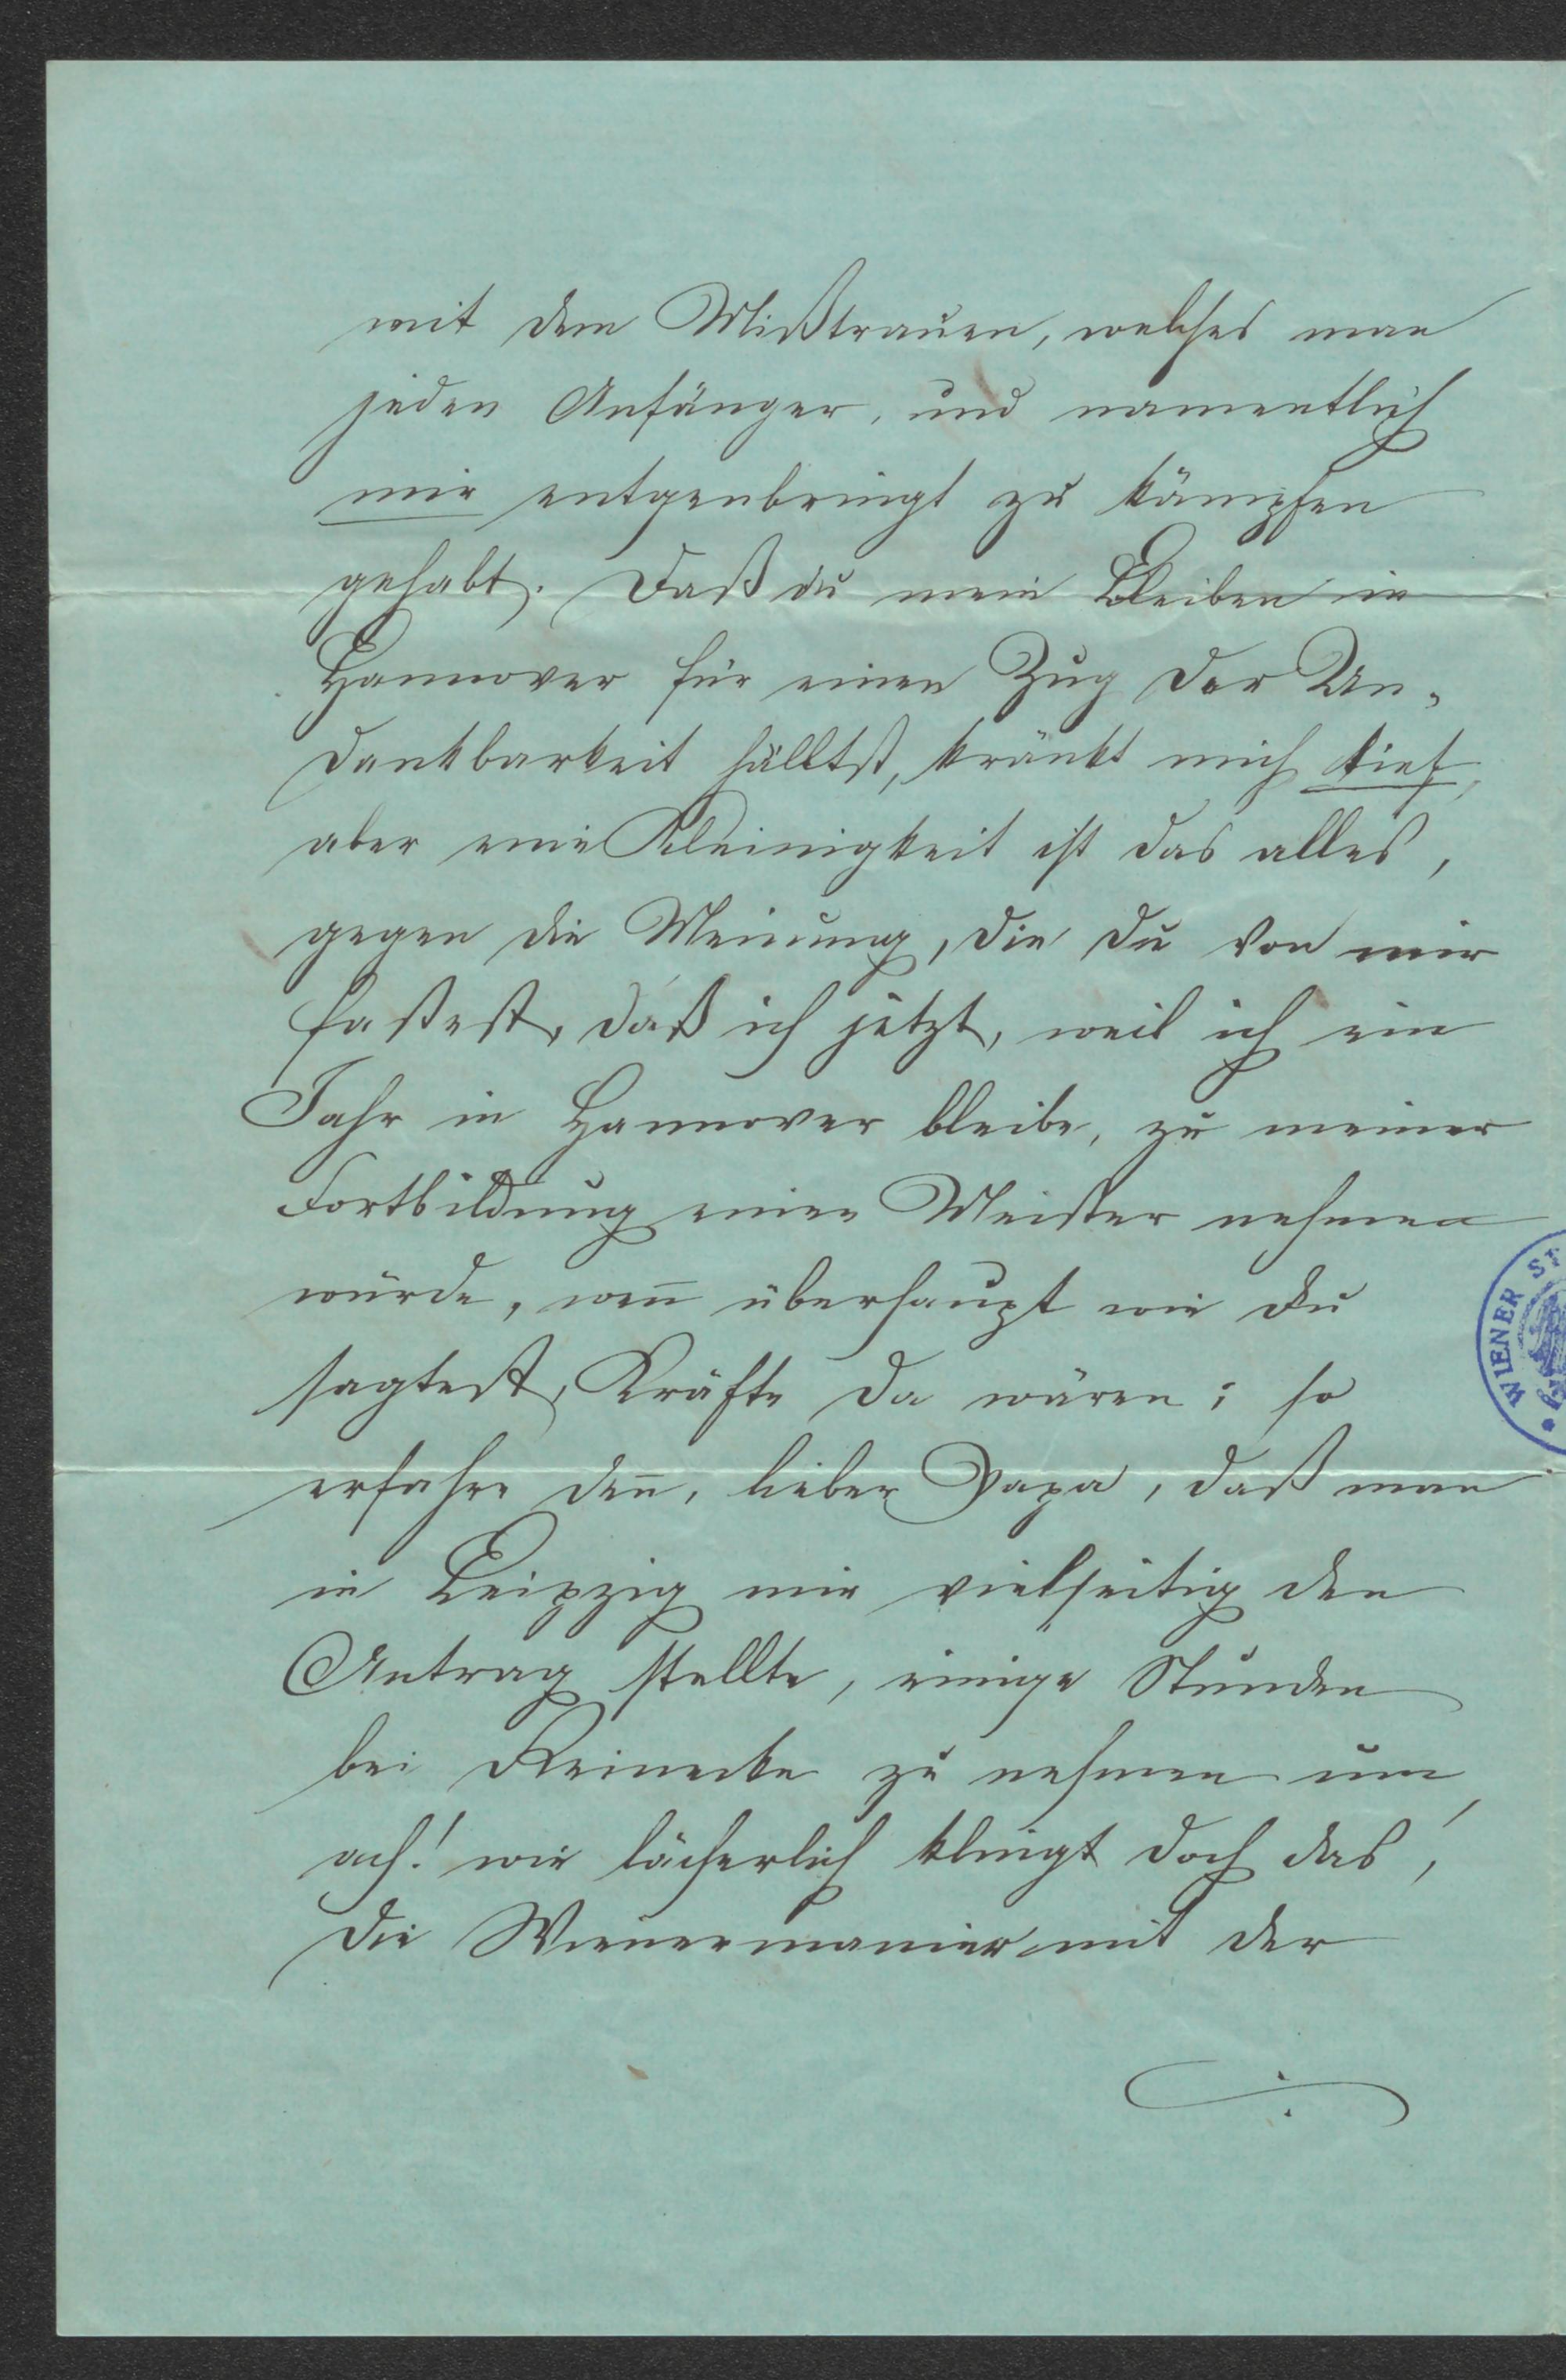 mit dem Mißtrauen, welches man
jeden Anfänger, und namentlich
mir entgenbringt zu kämpfen
gehabt. Daß du mein Bleiben in
Hannover für einen Zug der Un„
dankbarkeit hälltst, kränkt mich tief,
aber eine Kleinigkeit ist das alles,
gegen die Meinung, die du von mir
faßest, daß ich jetzt, weil ich ein
Jahr in Hannover bleibe, zu meiner
Fortbildung einen Meister nehmen
würde, wen̄ überhaupt wie Du
sagtest, Kräfte da wären; so
erfahre den̄, lieber Papa, daß man
in Leipzig mir vielseitig den
Antrag stellte, einige Stunden
bei Reinecke zu nehmen um
ach! wie lächerlich klingt doch das,
die Wienermanier mit der
WIENER ST